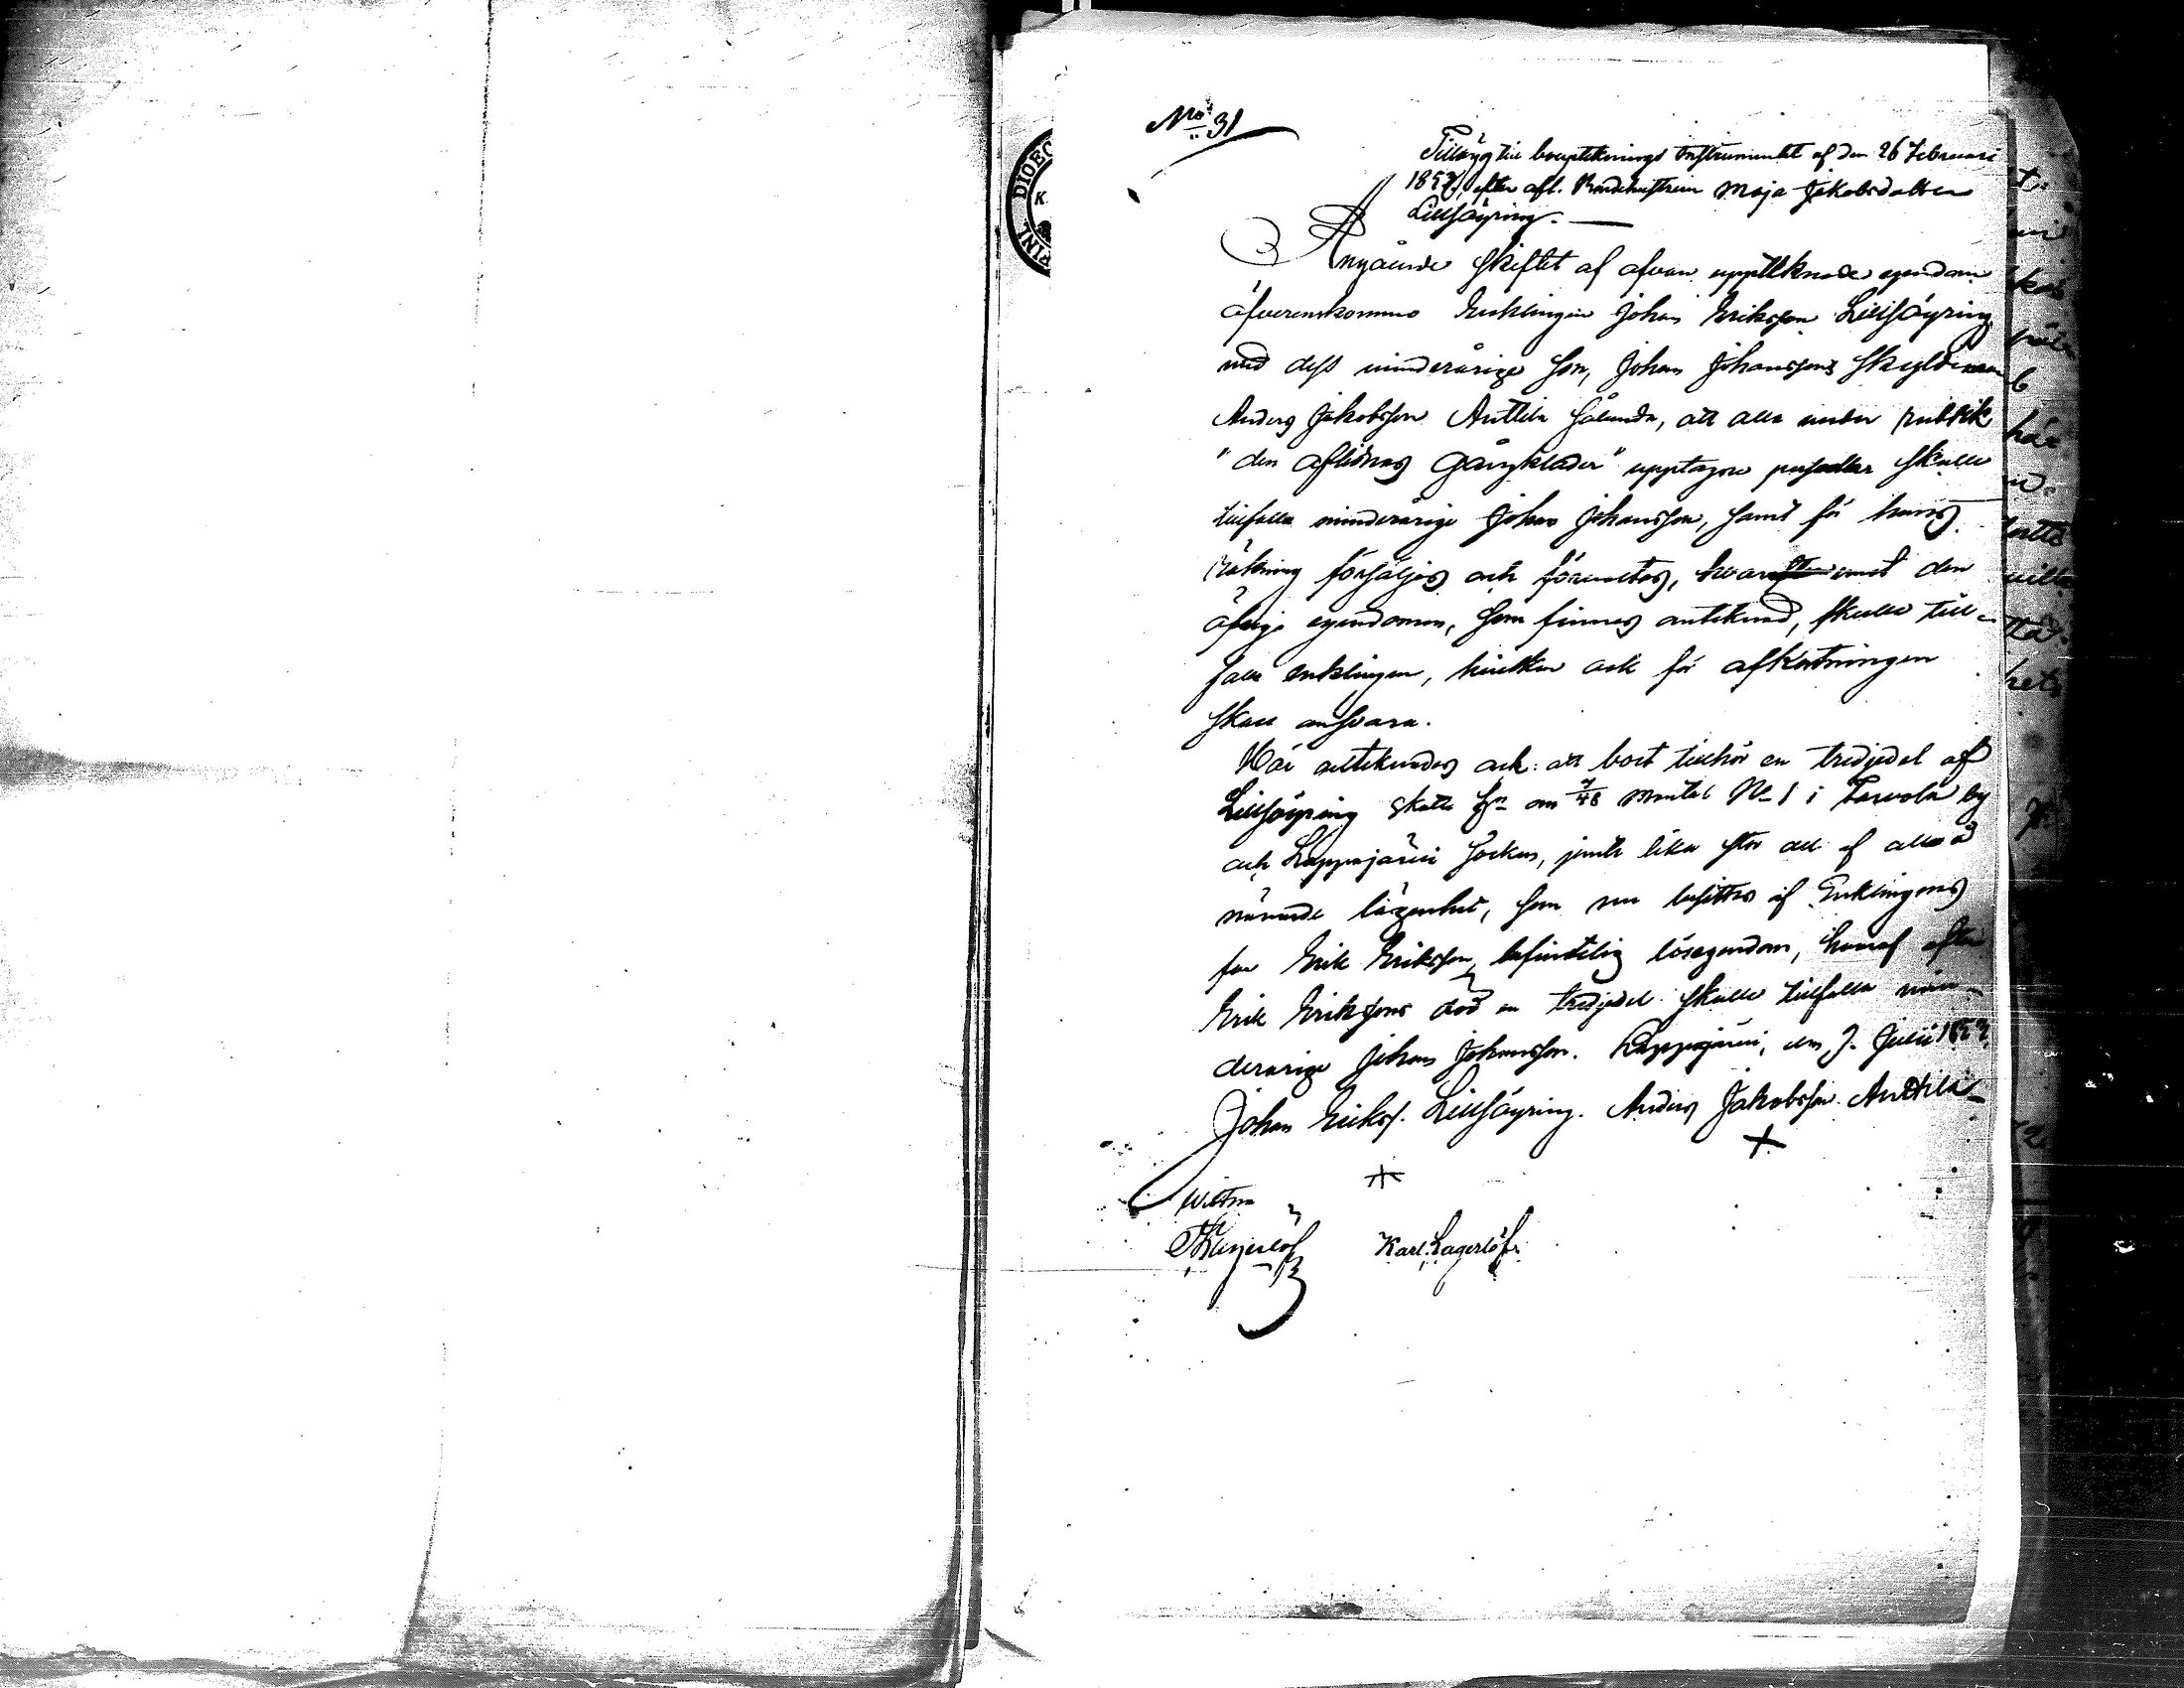 No 31
Tillägg till boupteknings Instrumentet af den 26 Februari
1857, efter afl. Bondehustrun Maja Jakobsdotter
Lillsöyring.
Angående skiftet af ofvan upptecknade egendom
öfverenskommo Enklingen Johan Eriksson Lillsöyring
med dess minderårige son, Johan Johanssons skyldeman
Anders Jakobsson Anttila sålunda, att alla under rubrik
"den aflidnas Gångkläder" upptagne persedlar skulle
tillfalla minderårige Johan Johansson, samt för hans
räkning försäljas och förvaltas, hvaremot den
öfriga egendomen, som finnes anteknad, skulle till-
falla enklingen, hvilken ock för afkortningen
skall ansvara.
Här anteknades ock: att boet tillhör en tredjedel af
Lillsöyring skatte hn om 7/48 mantal No 1 i Tarvola by
och Lappajärvi socken, jemte lika stor del af all å
nämnde lägenhet, som nu besittes af Enklingens
far Erik Eriksson, befintelig lösegendom, hvaraf efter
Erik Erikssons död en tredjedel skulle tillfalla min-
derårige Johan Johansson. Lappajärvi, den 7. Julii 1857.
Johan Erikss. Lillsöyring. Anders Jakobsson Anttila
Vittna
Karl Lagerlöf.
DIOEC
K.
FINL